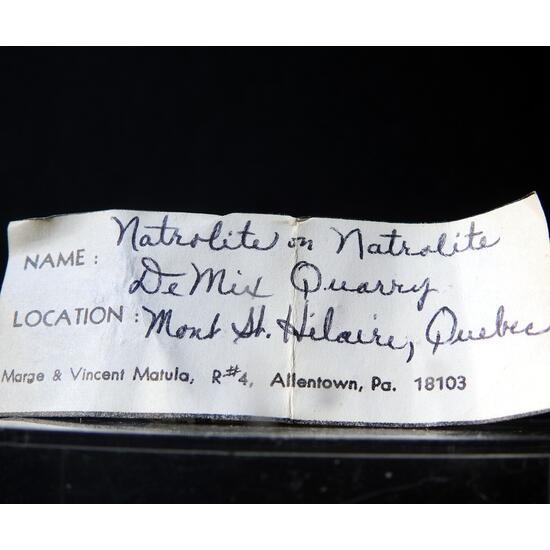 NAME: Natrolite on Natrolite
DeMix Quarry
LOCATION: Mont St. Hilaire, Quebec
Marge & Vincent Matula, R#4, Allentown, Pa. 18103